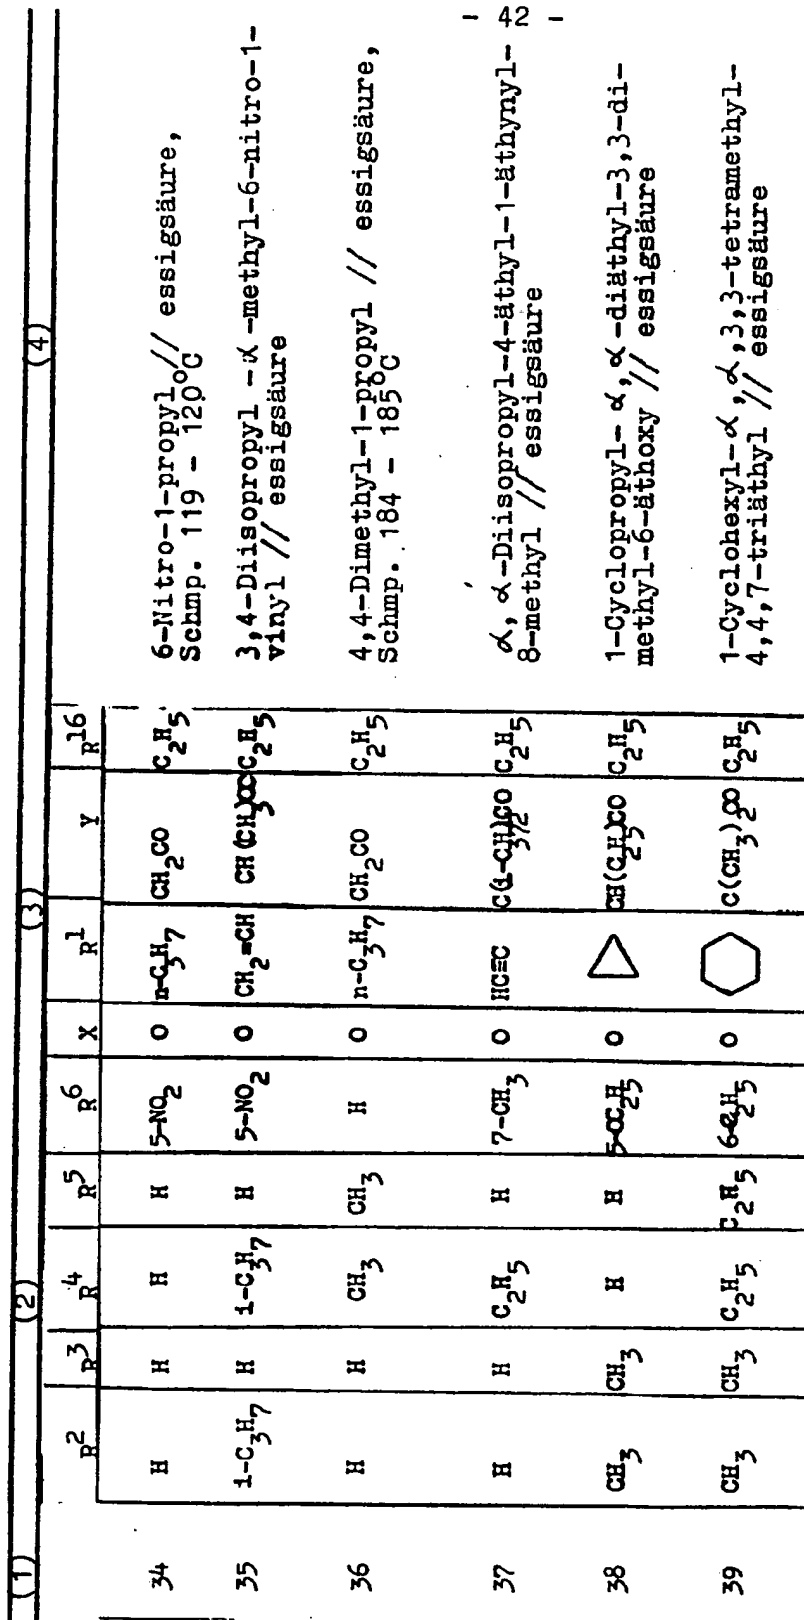 - 42 -
(1) (2) (3) (4)
R² R³ R⁴ R⁵ R⁶ X R¹ Y R¹⁶
34 H H H H 5-NO₂ O n-C₃H₇ CH₂CO C₂H₅ 6-Nitro-1-propyl // essigsäure,
Schmp. 119 - 120°C
35 i-C₃H₇ H i-C₃H₇ H 5-NO₂ O CH₂=CH CH(CH₃)CO C₂H₅ 3,4-Diisopropyl -α-methyl-6-nitro-1-
vinyl // essigsäure
36 H H CH₃ CH₃ H O n-C₃H₇ CH₂CO C₂H₅ 4,4-Dimethyl-1-propyl // essigsäure,
Schmp. 184 - 185°C
37 H H C₂H₅ H 7-CH₃ O HC≡C C(i-CH₃)₂CO C₂H₅ α,α-Diisopropyl-4-äthyl-1-äthynyl-
8-methyl // essigsäure
38 CH₃ CH₃ H H 5-OC₂H₅ O CH(C₂H₅)CO C₂H₅ 1-Cyclopropyl- α,α-diäthyl-3,3-di-
methyl-6-äthoxy // essigsäure
39 CH₃ CH₃ C₂H₅ C₂H₅ 6-C₂H₅ O C(CH₃)₂CO C₂H₅ 1-Cyclohexyl-α,α,3,3-tetramethyl-
4,4,7-triäthyl // essigsäure